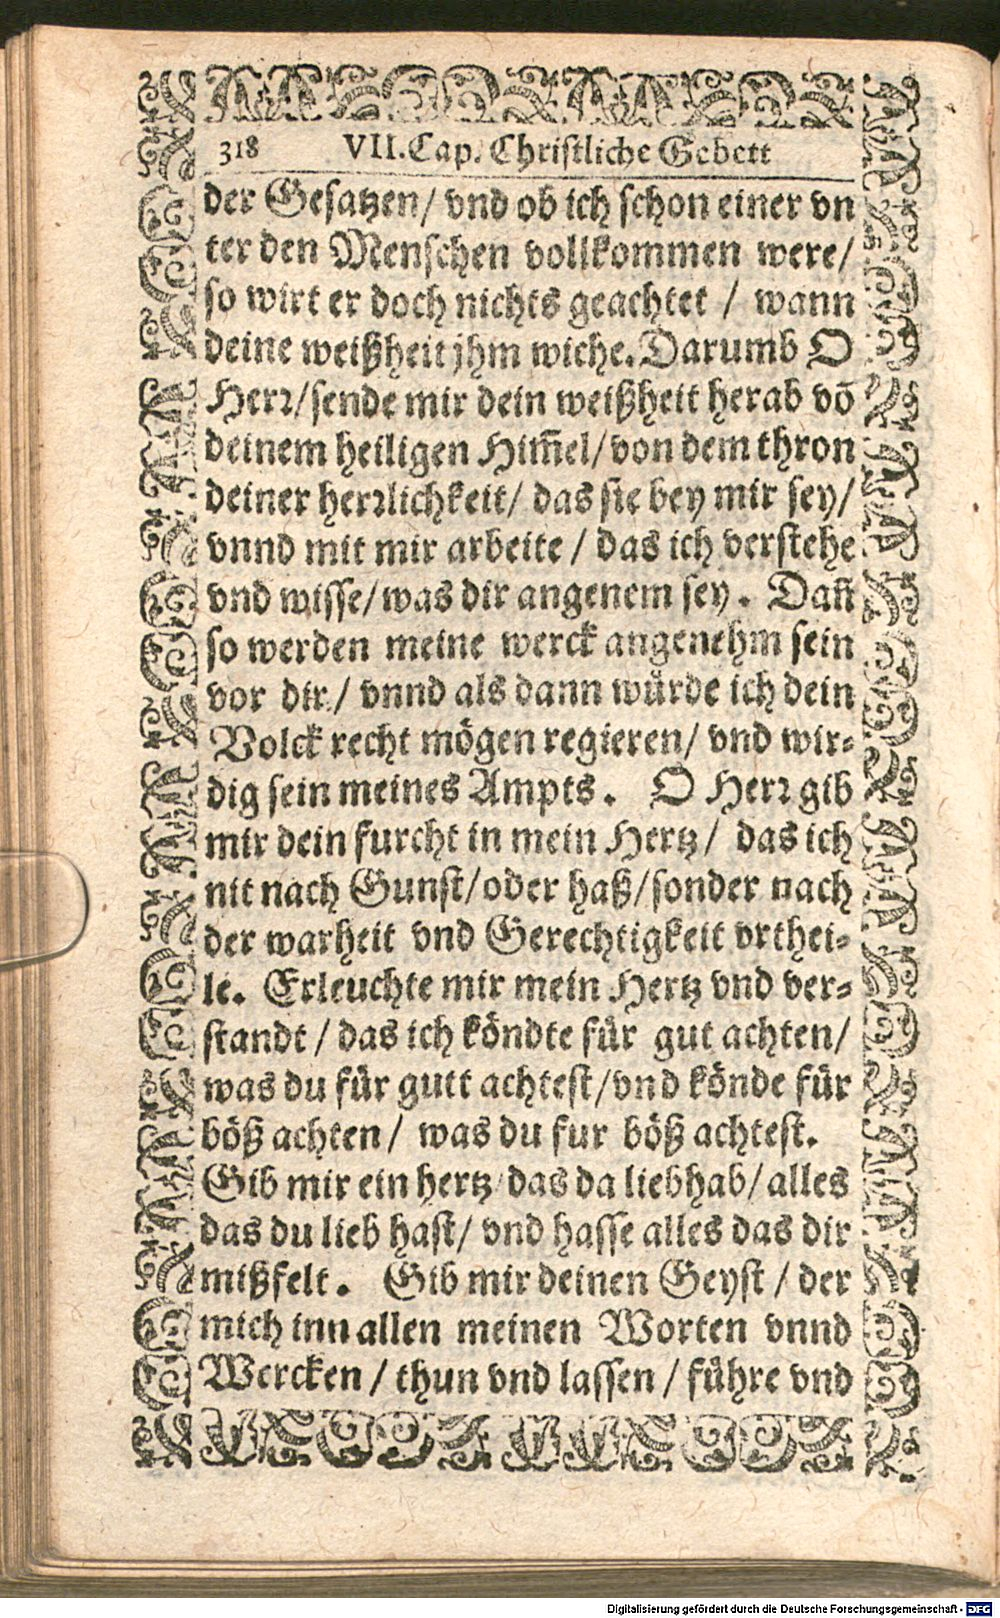 318 VII.Cap. Christliche Gebett
der Gesatzen/ vnd ob ich schon einer vn
ter den Menschen vollkommen were/
so wirt er doch nichts geachtet / wann
deine weißheit jhm wiche. Darumb O
Herr/sende mir dein weißheit herab võ
deinem heiligen Him̃el/von dem thron
deiner herrlichkeit/ das sie bey mir sey/
vnnd mit mir arbeite / das ich verstehe
vnd wisse/was dir angenem sey. Dañ
so werden meine werck angenehm sein
vor dir/ vnnd als dann würde ich dein
Volck recht mögen regieren/ vnd wir-
dig sein meines Ampts. O Herr gib
mir dein furcht in mein Hertz/ das ich
nit nach Gunst/oder haß/sonder nach
der warheit vnd Gerechtigkeit vrthei-
le. Erleuchte mir mein Hertz vnd ver-
standt / das ich köndte für gut achten/
was du für gutt achtest/vnd könde für
böß achten/ was du fur böß achtest.
Gib mir ein hertz/das da liebhab/alles
das du lieb hast/ vnd hasse alles das dir
mißfelt. Gib mir deinen Geyst / der
mich inn allen meinen Worten vnnd
Wercken / thun vnd lassen / führe vnd
Digitalisierung gefördert durch die Deutsche Forschungsgemeinschaft - DFG